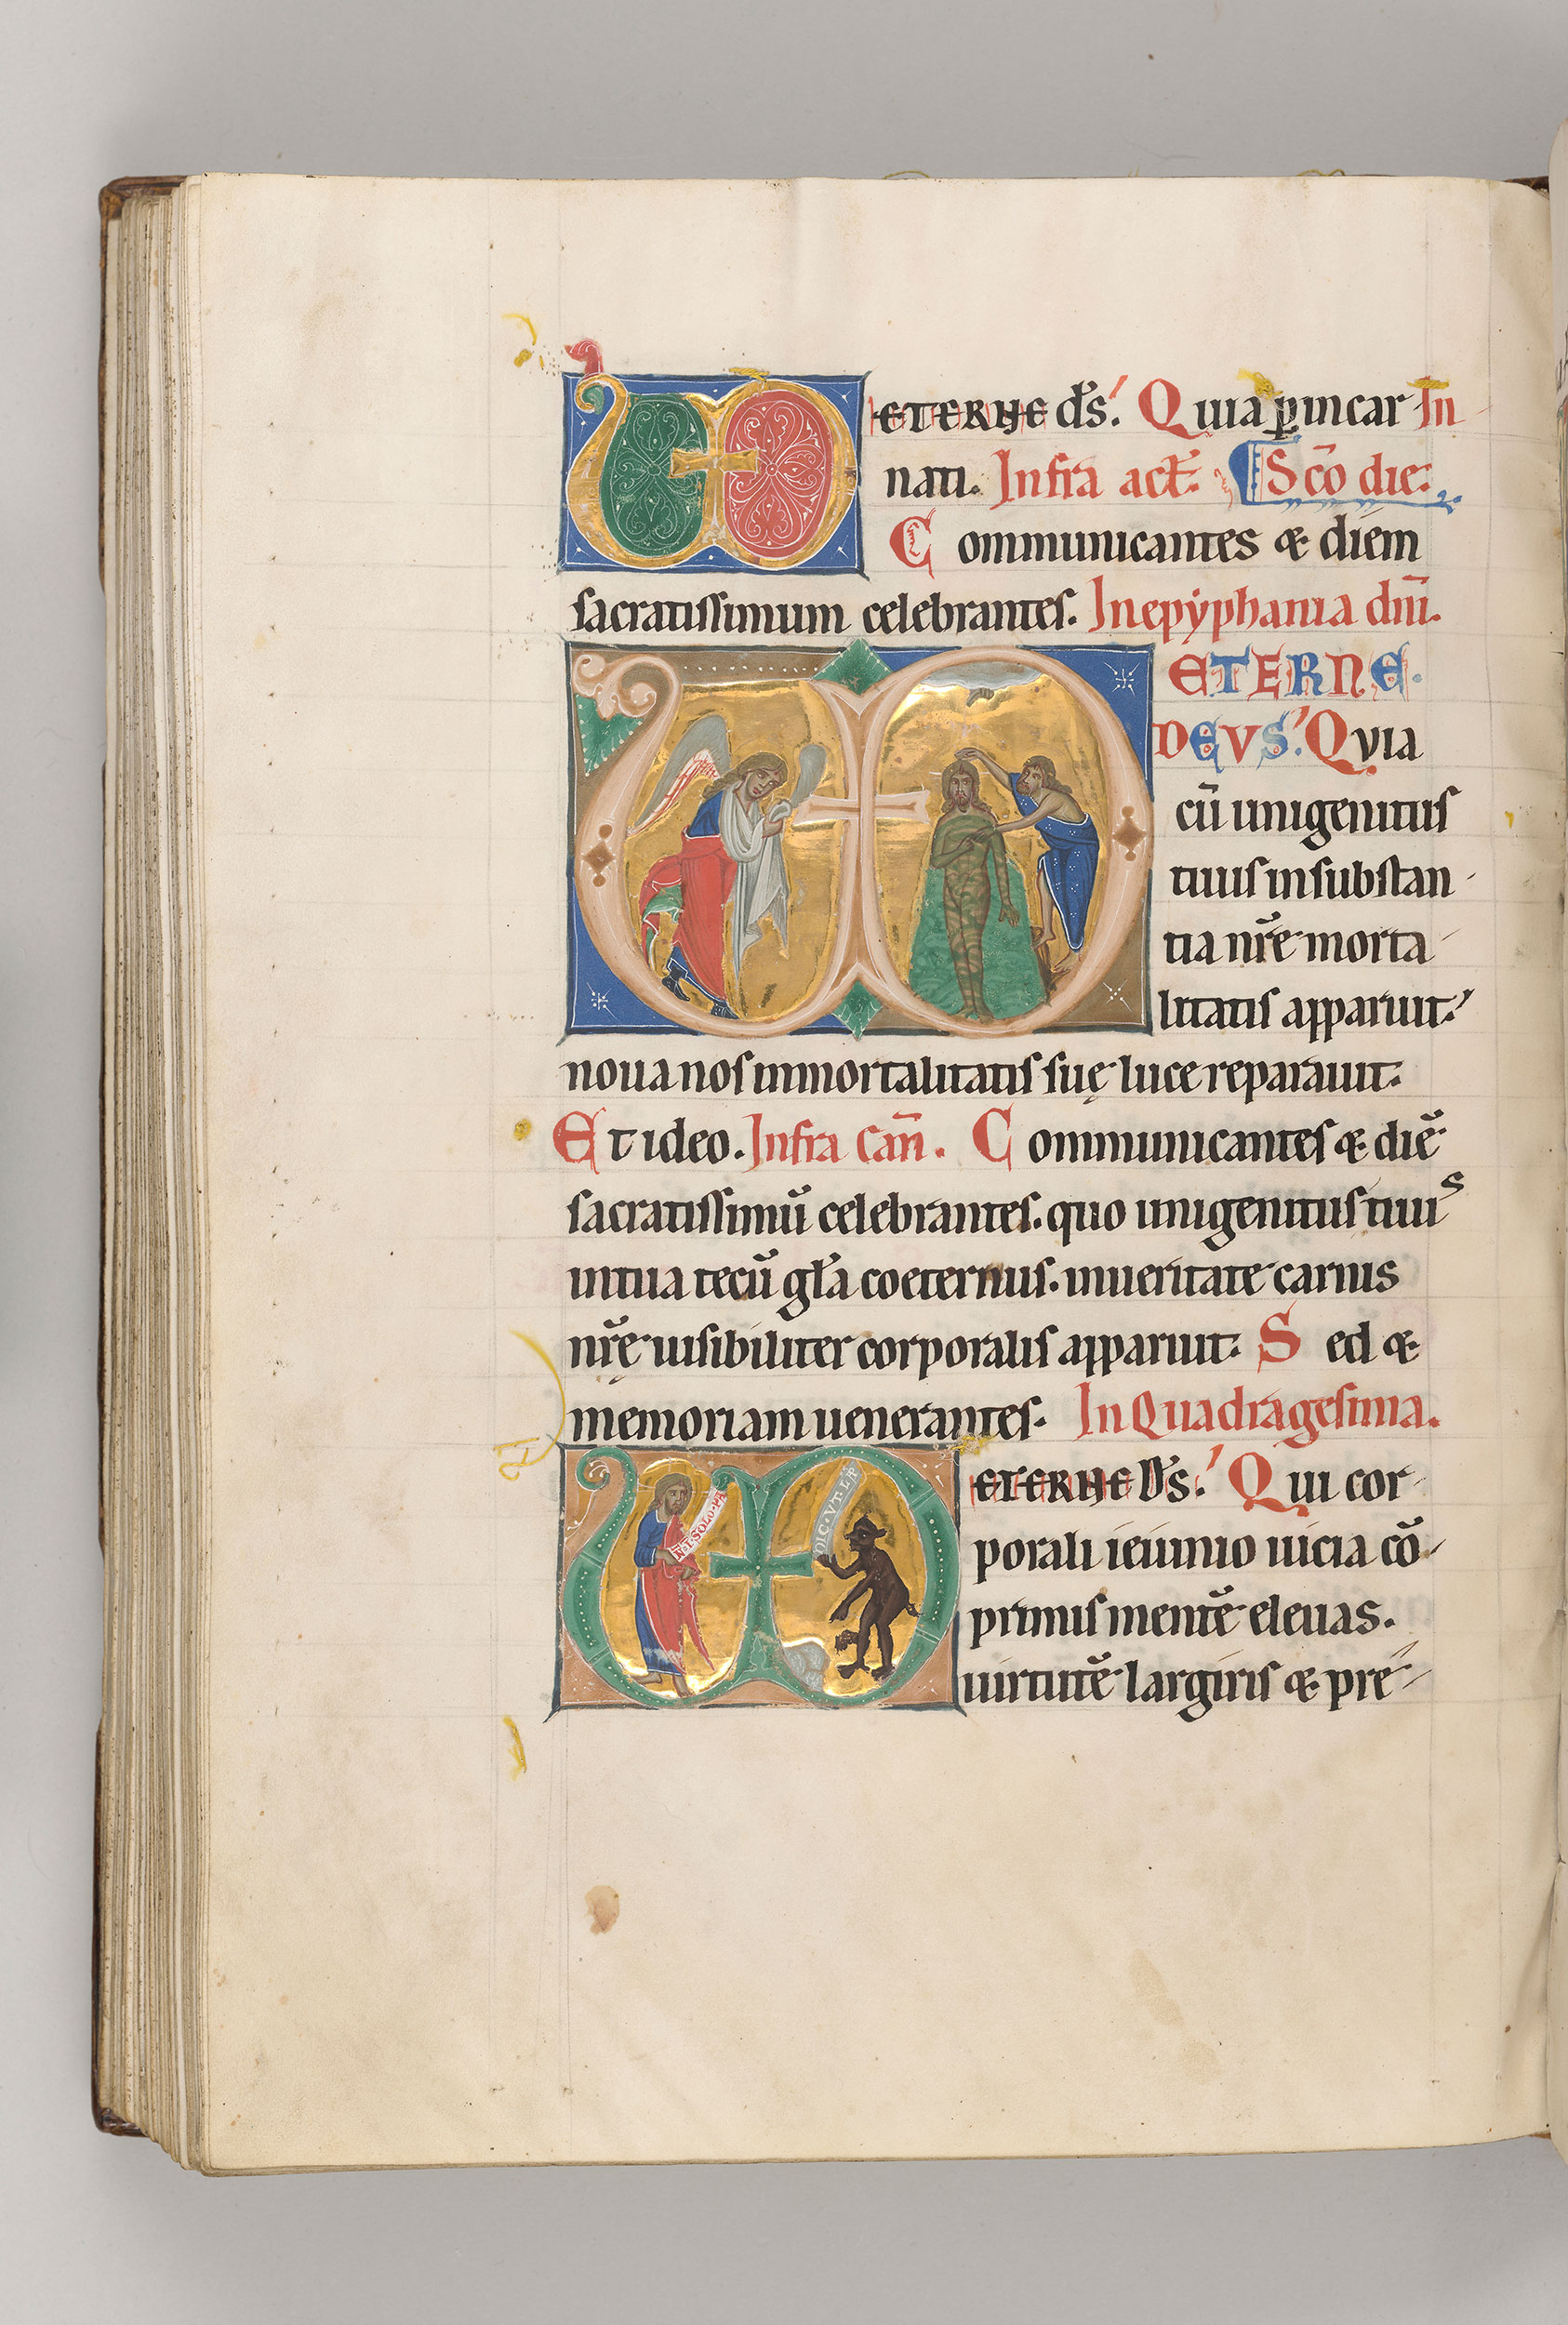 ETERNE d̄s. Quia p̲ incar In
nati. Infra act̄. Sc̄o die.
Communicantes & diem
sacratissimum celebrantes. In epẏphania dn̄i.
ETERNE
DEVS. Qvia
cū unigenitus
tuus in substan
tia nr̄ę morta
litatis apparuit.
noua nos inmortalitatis suę luce reparauit.
Et ideo. Infra Can̄. Communicantes & diē
sacratissimū celebrantes. quo unigenitus tuus
in tua tecū gl̄a coeternus. in ueritate carnis
nr̄ę uisibiliter corporalis apparuit. Sed &
memoriam uenerantes. In Quadragesima.
N̄ I. SOLO. PA
DIC. VT. LP
ETERNE D̄s. Qui cor
porali ieiunio uicia cō
primis mentē eleuas.
uirtutē largiris & pre